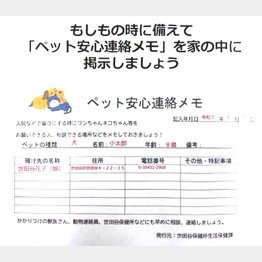 もしもの時に備えて
「ペット安心連絡メモ」を家の中に
掲示しましょう
ペット安心連絡メモ
記入年月日 令和 年 月 日
入院などで留守にする時にワンちゃんネコちゃん等を
お願いできる人、相談できる場所などをメモしておきましょう!
ペットの種類 犬 名前:小太郎 年齢:8歳 備考:
預け先の名称 住所 電話番号 その他・特記事項
世田谷花子(娘) 世田谷区世田谷4-22-35 0-35432-2908
かかりつけの獣医さん、動物連絡員、世田谷保健所などにも早めに相談、連絡しましょう。
発行元:世田谷保健所生活保健課